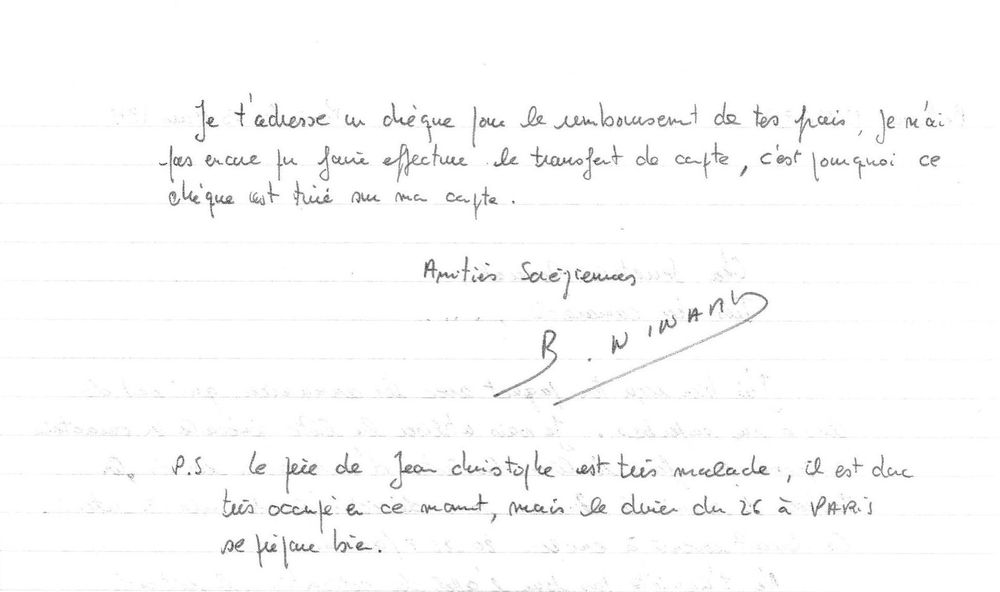 Je t'adresse un chèque pour le remboursement de tes frais, je n'ai
pas encore pu faire effectuer le transfert de compte, c'est pourquoi ce
chèque est tiré sur ma compte.
Amitiés
B. NINARD
P.S le père de Jean christophe est très malade, il est donc
très occupé en ce moment, mais le dîner du 26 à PARIS
se prépare bien.